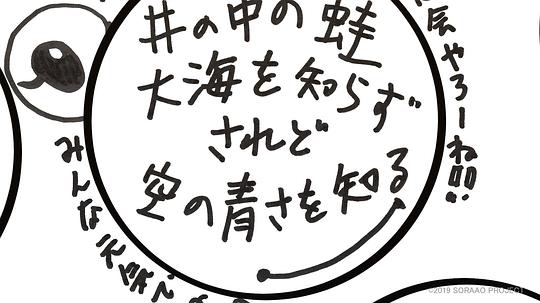 井の中の蛙
大海を知らず
されど
空の青さを知る
会やろーね!!!
みんな元気で
©2019 SORAAO PROJECT